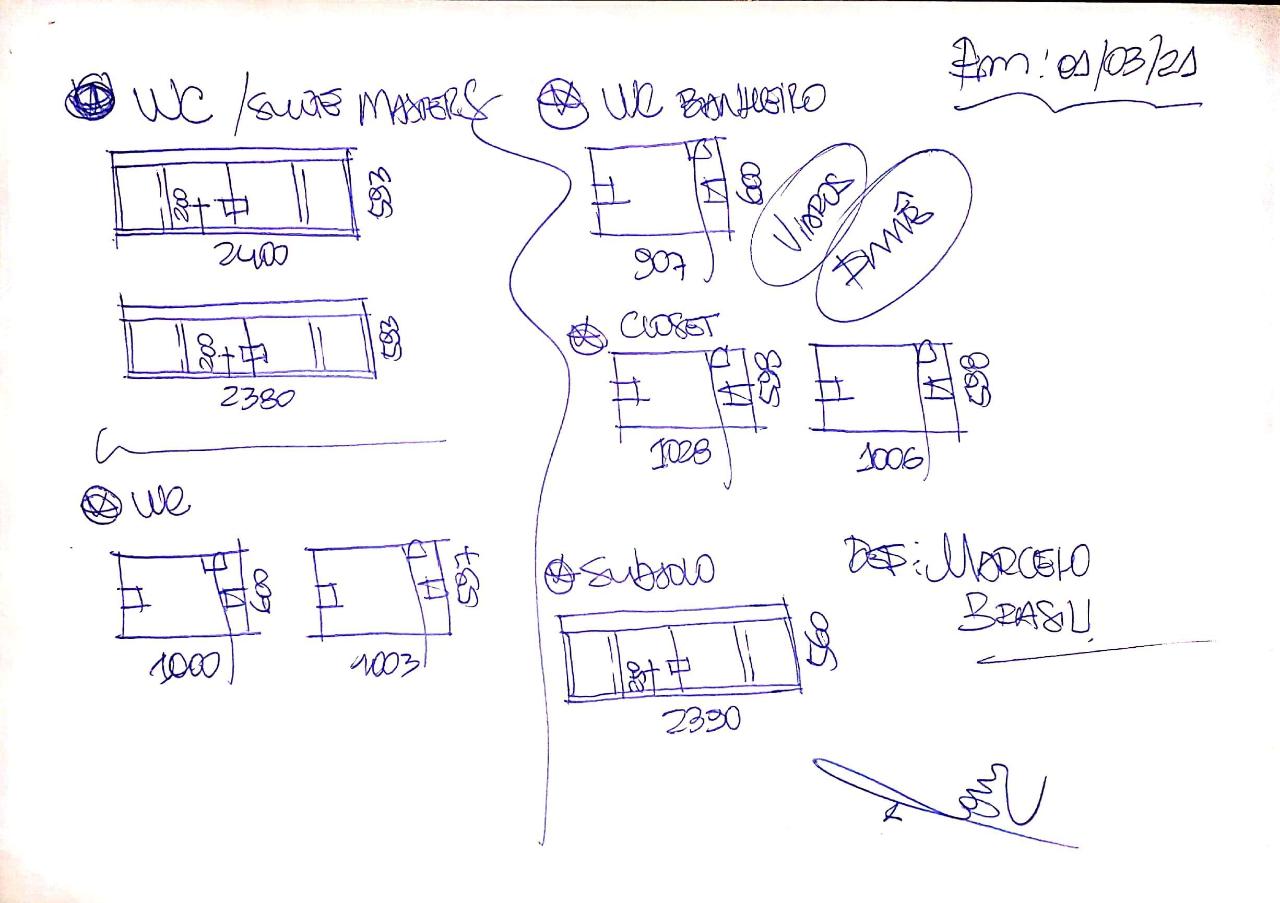 Em: 01/03/21
WC / SUITE MASTERS
593
200
2400
593
200
2380
WC
600
1000
597
1003
WC BANHEIRO
600
907
VIDROS
CLOSET
598
1028
598
1006
SUBSOLO
560
2390
DES: MARCELO
BRASIL